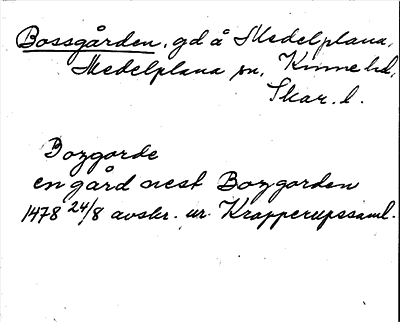 Bossgården, gd å Medelplana,
Medelplana sn, Kinne hd,
Skar. l.
Bozgorde
en gård nest Bozgorden
1478 24/8 avskr. ur Krapperupssaml.